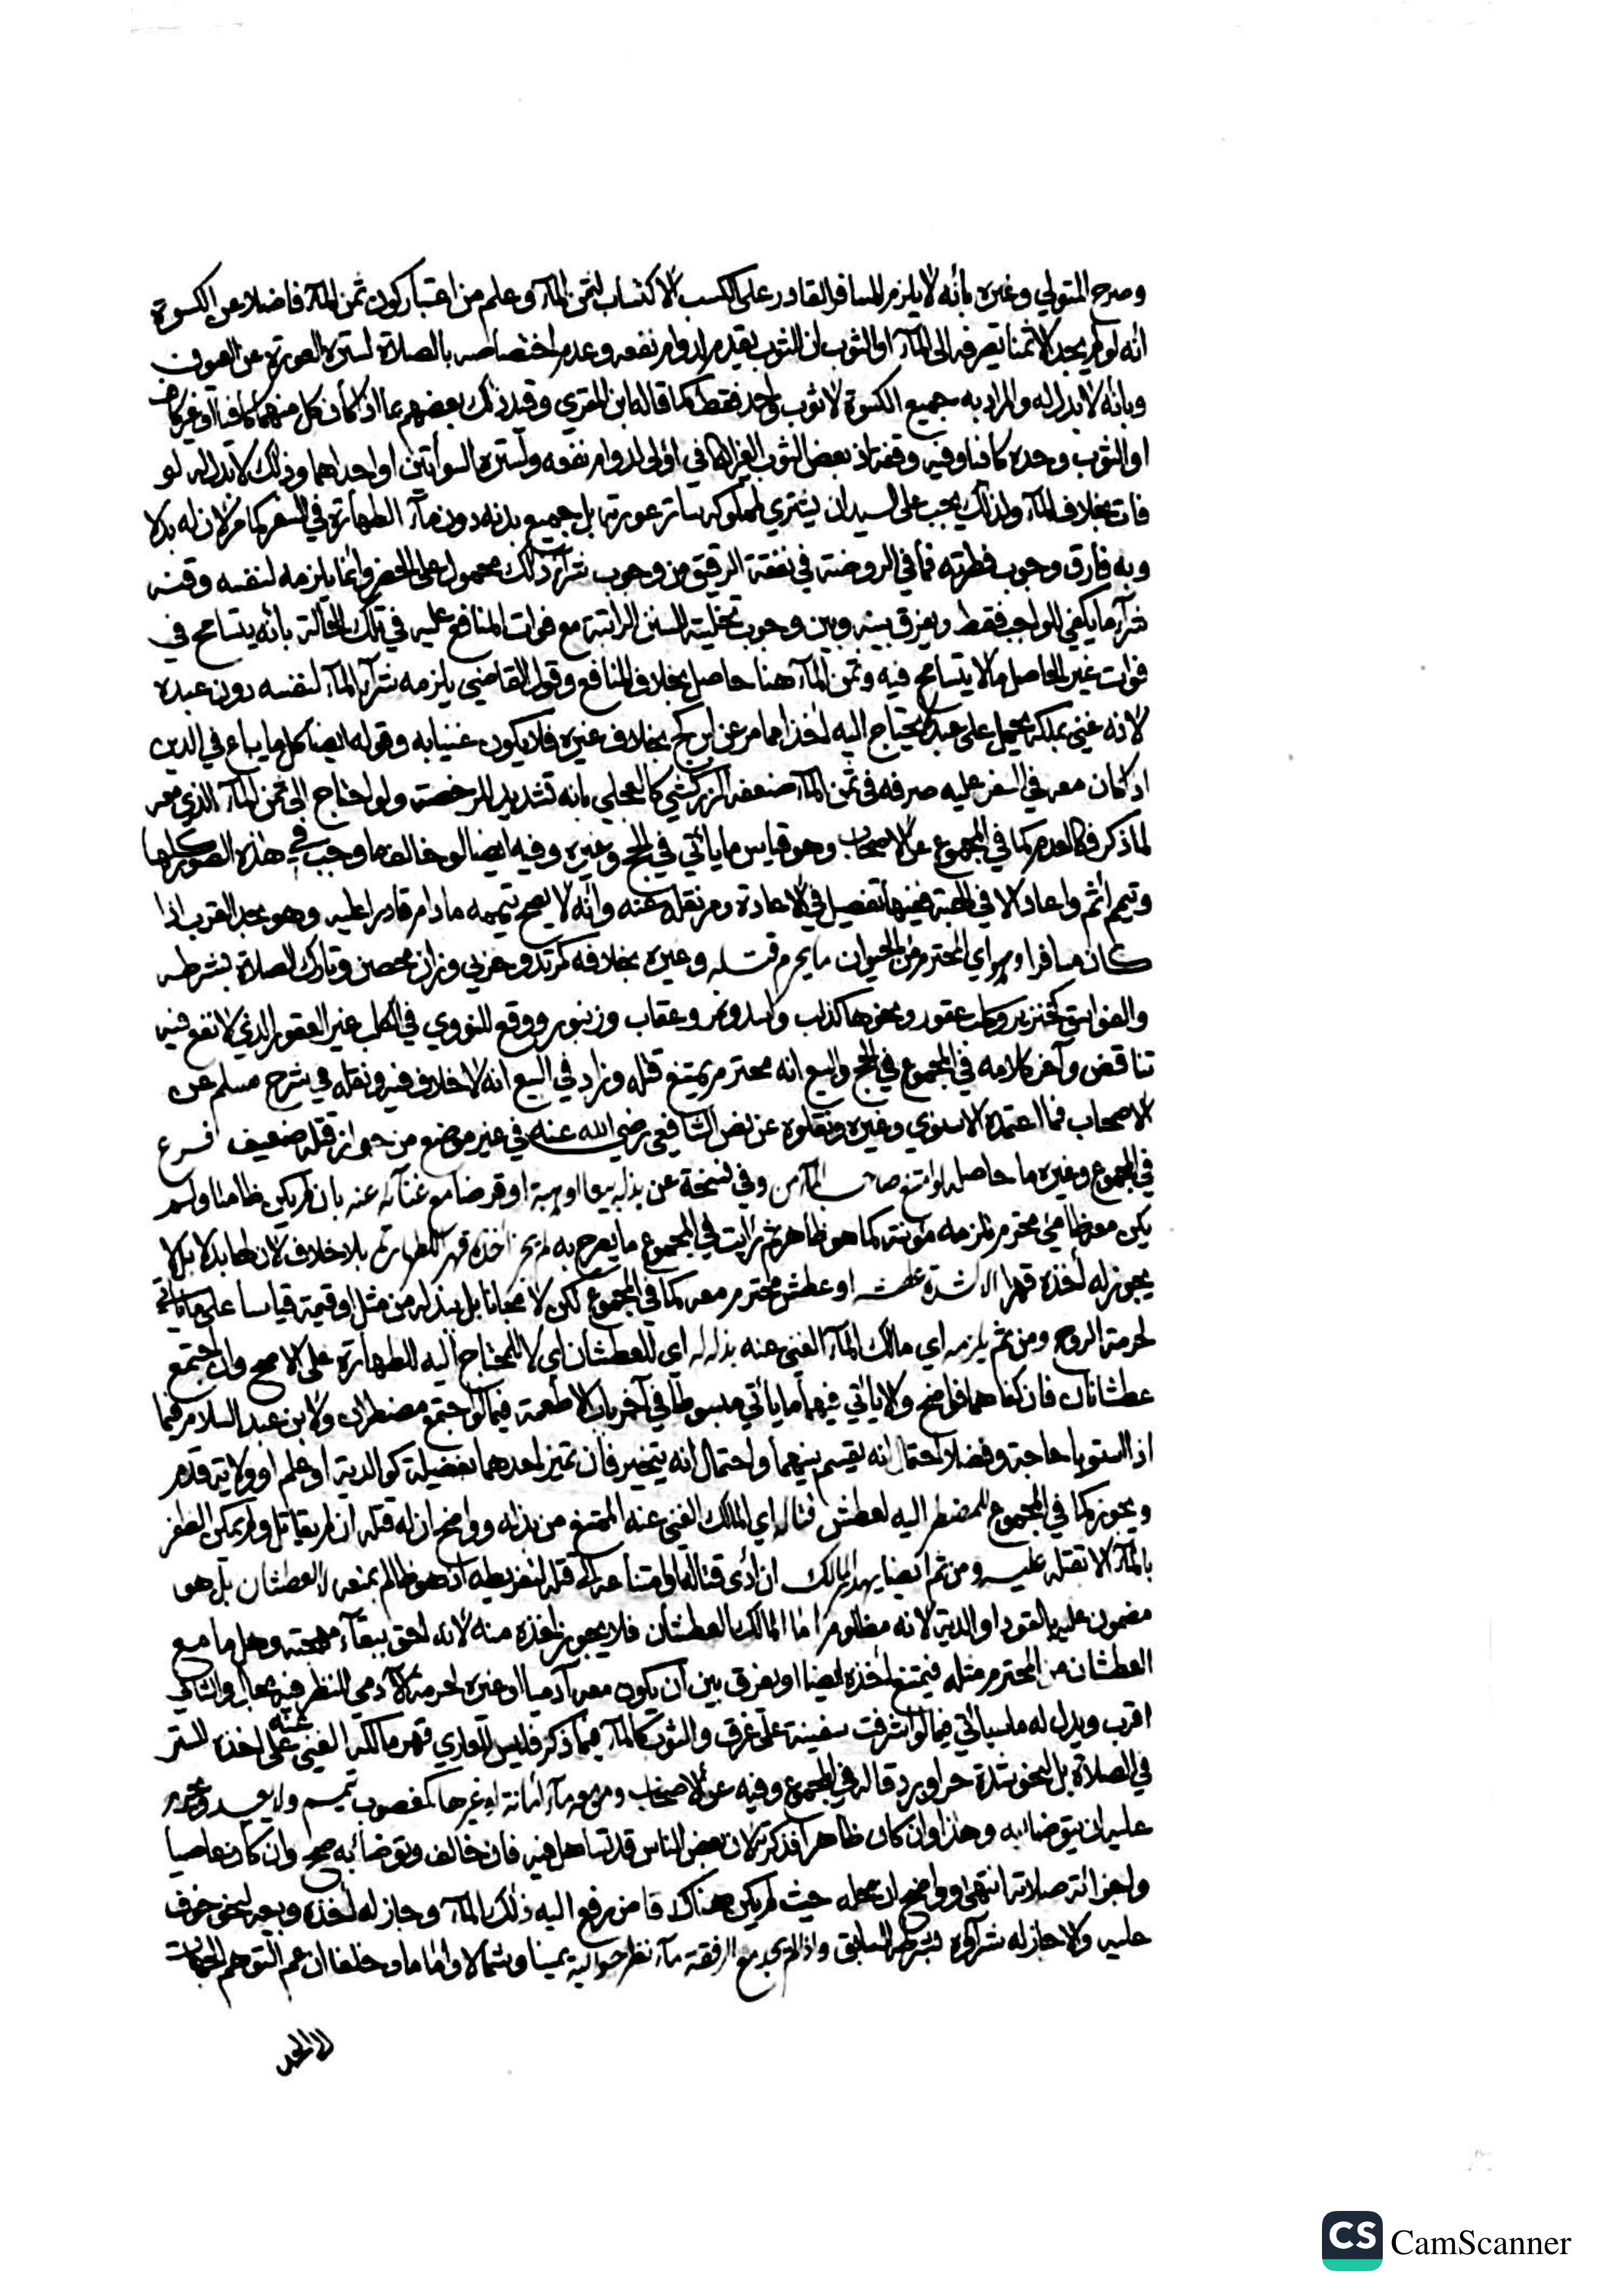 وصرح المتولي وغيره بأنه لا يلزم المسافر القادر على الكسب الاكتساب لثمن المآء وعلم من اعتبار كون ثمن المآء فاضلا عن الكسوة
أنه لو لم يجد الا ثمنا يصرفه الى المآء او الثوب ان الثوب يقدم لدوام نفعه وعدم اختصاصه بالصلاة لستره العورة عن العيون
وبأنه لا بدل له والمراد به جميع الكسوة لا ثوب واحد فقط كما قاله ابن المقري وقيد ذلك بعضهم بما اذا كان كل منهما كافيا او غير كاف
او الثوب وحده كافيا وفيه وقفة اذ بعض الثوب الغير الكافي اولى لدوام نفعه ولستره السوأتين او احداهما وذلك لا بدل له لو
فات بخلاف المآء ولذلك يجب على السيد ان يشتري لمملوكه ساتر عورته بل جميع بدنه دون مآء الطهارة في السفر كما مر لان له بدلا
وبه فارق وجوب فطرته فما في الروضة في نفقة الرقيق من وجوب شرآء ذلك محمول على الحضر وانما يلزمه لنفسه وقنه
شرآء ما يكفي للواجب فقط ويفرق بينه وبين وجوب تخليته للسنن الراتبة مع فوات المنافع عليه في تلك الحالة بأنه يتسامح في
فوات غير الحاصل ما لا يتسامح فيه وثمن المآء هنا حاصل بخلاف المنافع وقول القاضي يلزمه شرآء المآء لنفسه دون عبده
لانه غني بملكه يحمل على عبد لا يحتاج اليه اخذا مما مر عن ابن كج بخلاف غيره فلا يكون غنيا به وقوله ايضا كل ما يباع في الدين
اذا كان معه في السفر عليه صرفه في ثمن المآء ضعفه الزركشي كالعجلي بانه تشديد للرخصة ولو احتاج الى ثمن المآء الذي معه
لما ذكر فكالعدم كما في المجموع عن الاصحاب وهو قياس ما يأتي في الحج وغيره وفيه ايضا لو خالف ما وجب في هذه الصور كلها
وتيمم أثم واعاد الا في الهبة ففيها تفصيل في الاعادة ومر نقله عنه وأنه لا يصح تيممه ما دام قادرا عليه وهو بحد القرب اذا
كان مسافرا وهو اي المحترم من الحيوان ما يحرم قتله وغيره بخلافه كمرتد وحربي وزان محصن وتارك الصلاة بشرطه
والفواسق كخنزير وكلب عقور ونحوها كذئب وأسد ونمر وعقاب وزنبور ووقع للنووي في الكلب غير العقور الذي لا نفع فيه
تناقض وآخر كلامه في المجموع في الحج والبيع انه محترم يمتنع قتله وزاد في البيع انه لا خلاف فيه ونقله في شرح مسلم عن
الاصحاب فما اعتمده الاسنوي وغيره ونقلوه عن نص الشافعي رضي الله عنه في غير موضع من جواز قتله ضعيف فرع
في المجموع وغيره ما حاصله لو امتنع صاحب المآء من وفي نسخة عن بذله بيعا او هبة او قرضا مع غنآئه عنه بان لم يكن ظامئا ولم
يكن معه ظامئ محترم تلزمه مؤنته كما هو ظاهر ثم رايت في المجموع ما يصرح به لم يجز اخذه قهرا لطهارته بلا خلاف لان لها بدلا بل لا
يجوز له اخذه قهرا الا لشدة عطشه او عطش محترم معه كما في المجموع لكن لا مجانا بل ببذل ثمن مثل او قيمة قياسا على ما يأتي
لحرمة الروح ومن ثم يلزمه اي مالك المآء الغني عنه بذله له اي للعطشان اي لا للمحتاج اليه للطهارة على الاصح وان اجتمع
عطشانان فان كفاهما فواضح ولا يأتي فيهما ما يأتي مبسوطا في آخر باب الاطعمة فيما لو اجتمع مضطران ولابن عبد السلام فيما
اذا استويا حاجة وفضلا احتمال انه يقسم بينهما واحتمال انه يتخير فان تميز احدهما بفضيلة كوالدية او علم او ولاية قدم
ويجوز كما في المجموع للمضطر اليه لعطش قتال اي المالك الغني عنه الممتنع من بذله وواضح ان له قتله ان لم يقاتل ولم يمكن الظفر
بالمآء الا بقتله عليه ومن ثم ايضا يهدر المالك ان ادى قتاله او امتناعه الى قتله لتفريطه اذ هو ظالم بمنعه لا العطشان بل هو
مضمون عليه بالقود او الدية لانه مظلوم اما المالك العطشان فلا يجوز اخذه منه لانه احق ببقآء مهجته وهل ما مع
العطشان من المحترم مثله فيمتنع اخذه ايضا او يفرق بين ان يكون معه آدميا او غيره لحرمة الآدمي للنظر فيه مجال والثاني
اقرب ويدل له ما سيأتي فيما لو اشرفت سفينة على غرق والثوب كالمآء فيما ذكر فليس للعاري قهر مالكه الغني عنه على اخذه للستر
في الصلاة بل لنحو شدة حر او برد قاله في المجموع وفيه عن الاصحاب ومن معه مآء امانة او غيرها كمغصوب تيمم ولا يعيد ويحرم
عليه ان يتوضأ به وهذا وان كان ظاهرا فذكرته لان بعض الناس قد يتساهل فيه فان خالف وتوضأ به صح وان كان عاصيا
واجزأته صلاته انتهى وواضح ان محله حيث لم يكن هناك قاض يرفع اليه ذلك المآء وجاز له اخذه وبيعه لنحو خوف
عليه والا جاز له شرآؤه بشرطه السابق واذا لم يجد مع الرفقة مآء نظر حواليه يمينا وشمالا واماما وخلفا ان عم التوهم الجهات